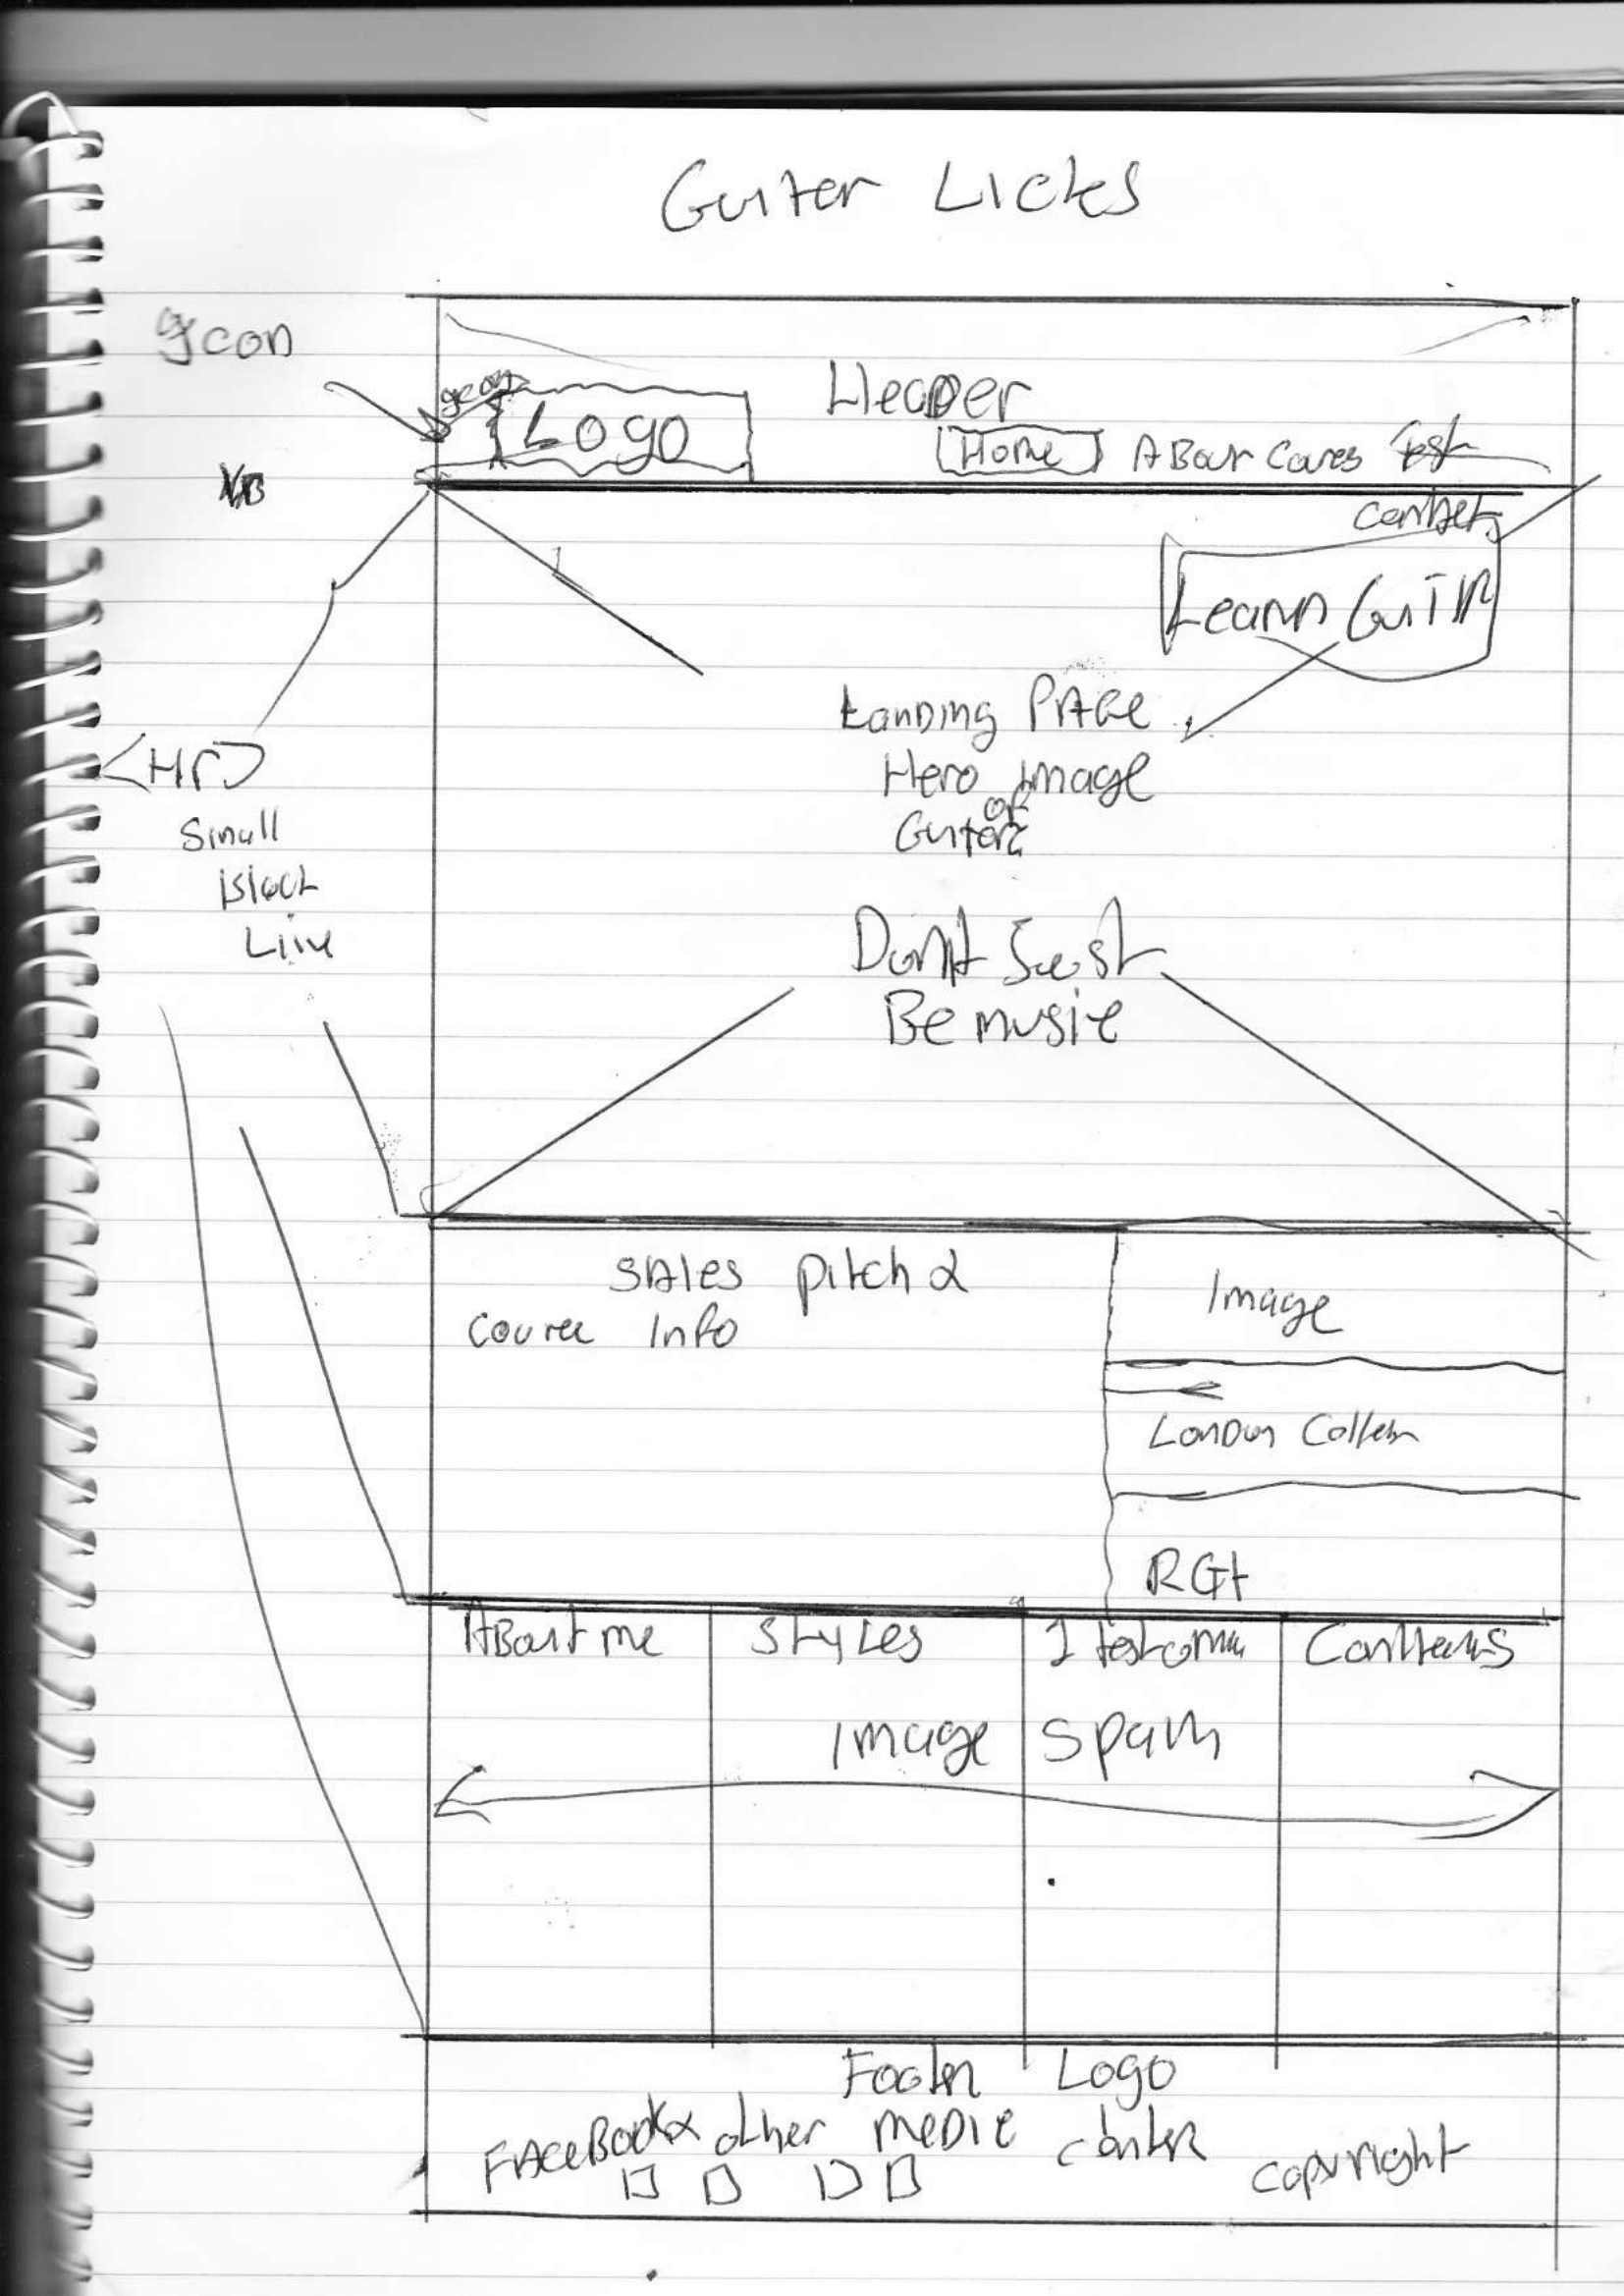 Guiter Licks
gcon
Logo
Header
Home About Cores Test
Contact
Learn GuiTR
Landing PAGe
Hero Image
of
Guiters
<Hr>
Small
Black
Line
Dont Just
Be music
SAles pitch &
Course Info
Image
London College
RGt
About me
Styles
1 testom
Image Span
Footer Logo
FAceBook & other medie center
copyright